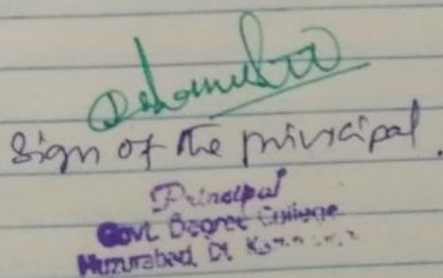 Sign of the principal.
Principal
Govt. Degree College
Huzurabad, Dt.